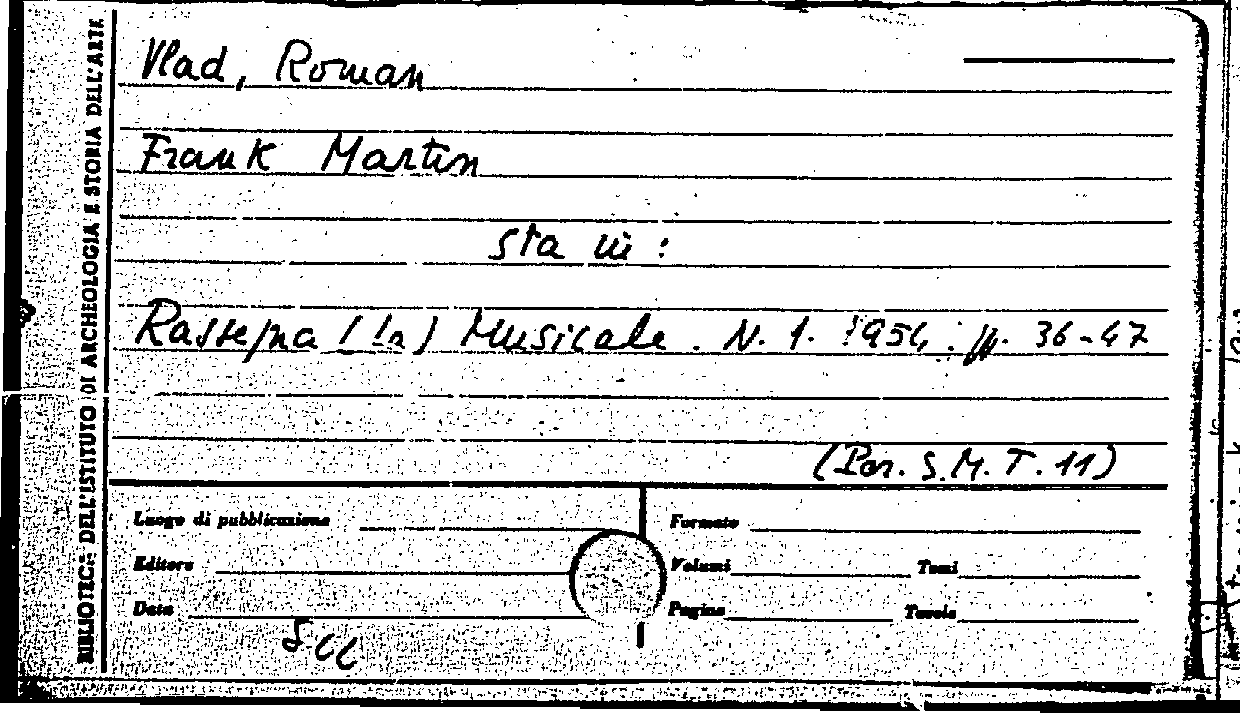 BIBLIOTECA DELL'ISTITUTO DI ARCHEOLOGIA E STORIA DELL'ARTE
Vlad, Roman
Frank Martin
sta in:
Rassegna (La) Musicale. N. 1. 1954: pp. 36-47
(Per. S.M.T. 11)
Luogo di pubblicazione Formato
Editore Volumi Tomi
Data Pagine Tavole